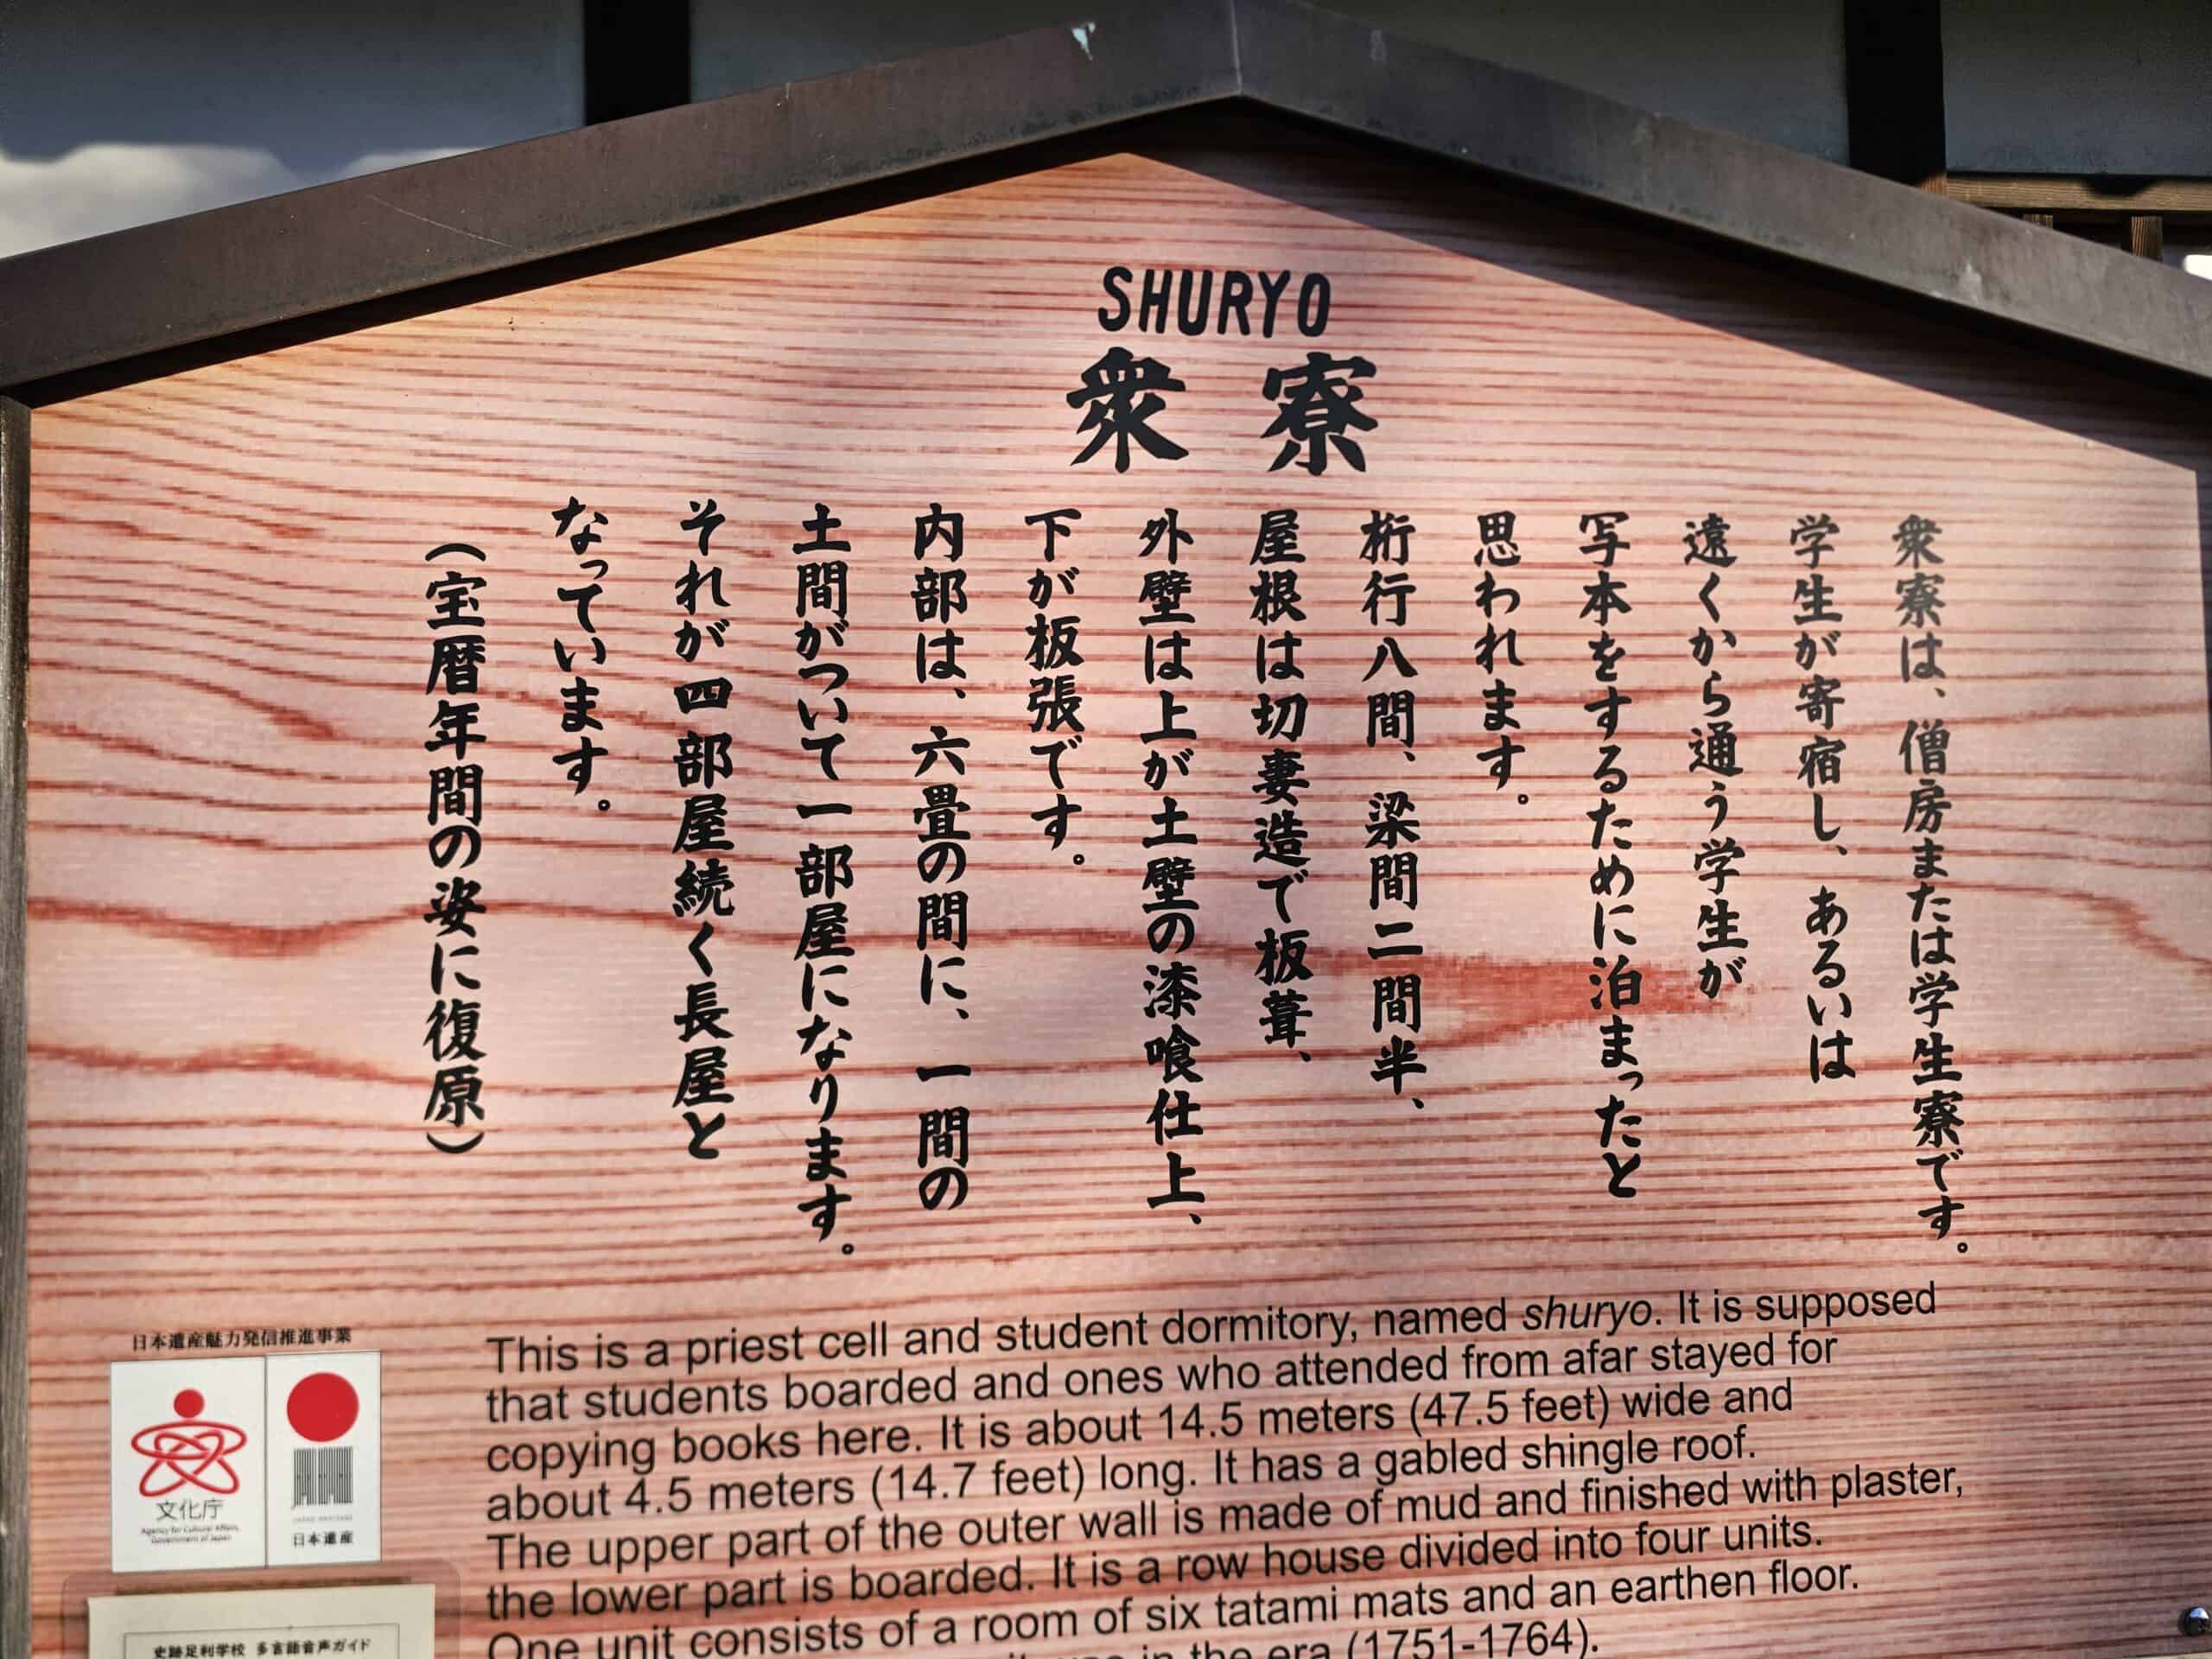 SHURYO
衆寮
衆寮は、僧房または学生寮です。
学生が寄宿し、あるいは
遠くから通う学生が
写本をするために泊まったと
思われます。
桁行八間、梁間二間半、
屋根は切妻造で板葺、
外壁は上が土壁の漆喰仕上、
下が板張です。
内部は、六畳の間に、一間の
土間がついて一部屋になります。
それが四部屋続く長屋と
なっています。
（宝暦年間の姿に復原）
This is a priest cell and student dormitory, named shuryo. It is supposed
that students boarded and ones who attended from afar stayed for
copying books here. It is about 14.5 meters (47.5 feet) wide and
about 4.5 meters (14.7 feet) long. It has a gabled shingle roof.
The upper part of the outer wall is made of mud and finished with plaster,
the lower part is boarded. It is a row house divided into four units.
One unit consists of a room of six tatami mats and an earthen floor.
in the era (1751-1764).
日本遺産魅力発信推進事業
文化庁
Agency for Cultural Affairs,
Government of Japan
JAPAN HERITAGE
日本遺産
史跡足利学校 多言語音声ガイド